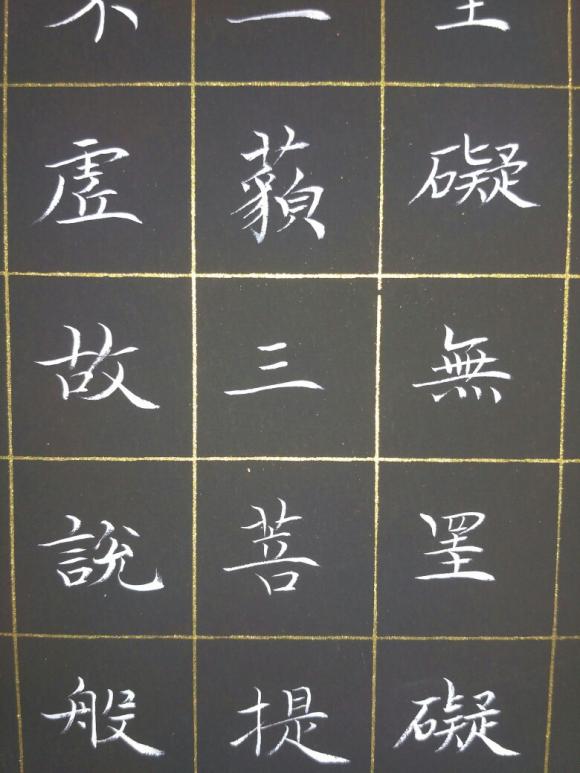 礙無罣礙
藐三菩提
不虛故說般